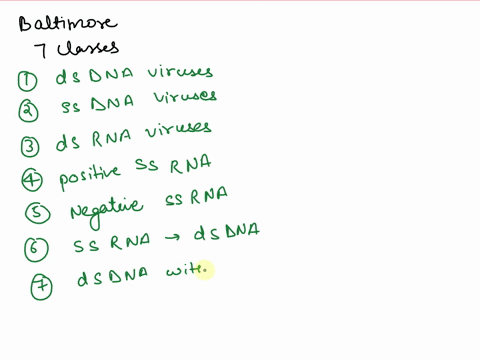 Baltimore
7 classes
① ds DNA viruses
② ss DNA viruses
③ ds RNA viruses
④ positive ss RNA
⑤ Negative ss RNA
⑥ ss RNA → ds DNA
⑦ ds DNA wite